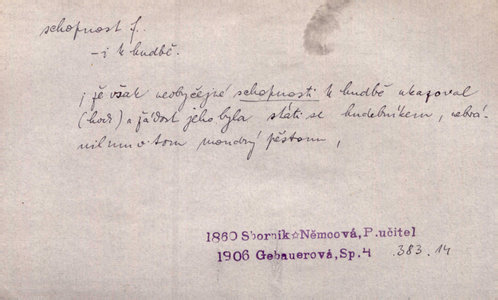 schopnost f.
-i k hudbě.
; že však neobyčejné schopnosti k hudbě ukazoval
(hoch) a žádost jeho byla státi se hudebníkem, nebrá-
nil mu v tom moudrý pěstoun,
1860 Sborník☆Němcová,P.učitel
1906 Gebauerová,Sp.4 383.14